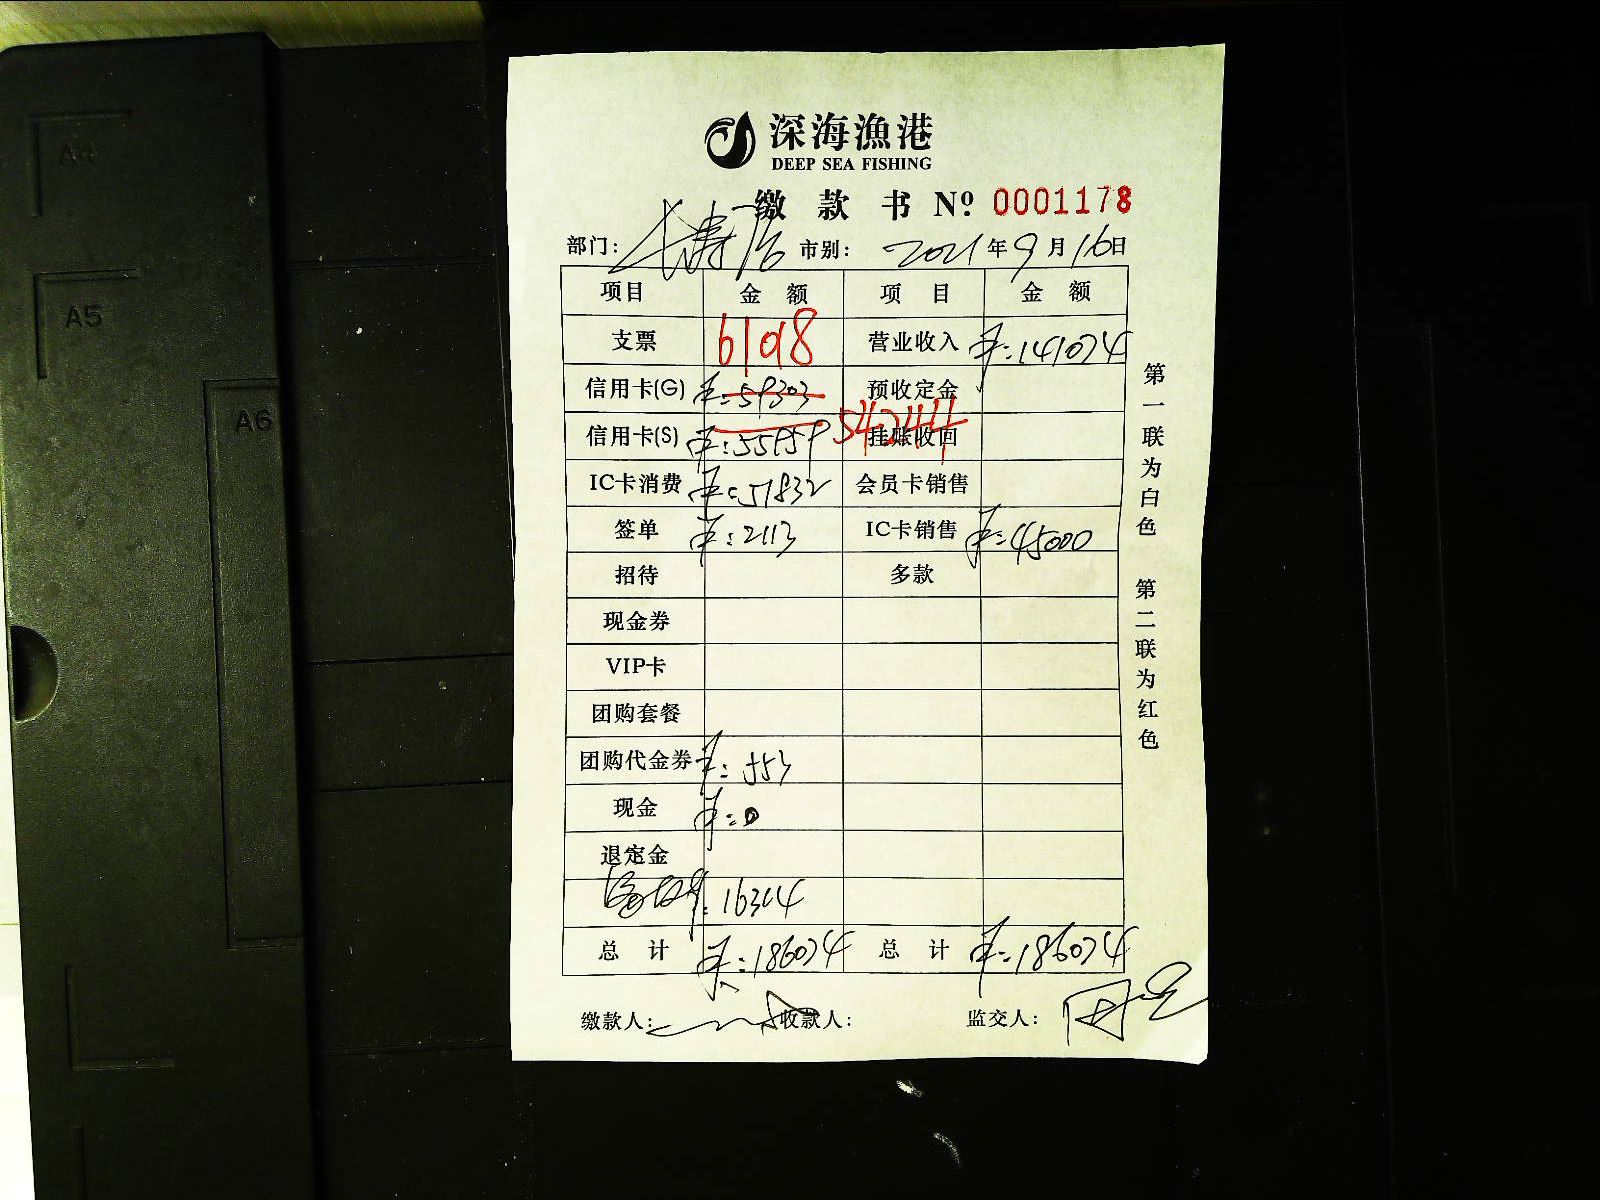 A4
A5
A6
深海漁港
DEEP SEA FISHING
缴款书 Nº: 0001178
部门: 长寿 市别: 2021年9月16日
项目 金额 项目 金额
支票 61018 营业收入 ¥:141074
信用卡(G) ¥:59303 预收定金
信用卡(S) ¥:55959 54244 挂账收回
IC卡消费 ¥:51832 会员卡销售
签单 ¥:2113 IC卡销售 ¥:45000
招待 多款
现金券
VIP卡
团购套餐
团购代金券 ¥:553
现金 ¥:0
退定金
:16314
总计 ¥:186074 总计 ¥:186074
缴款人: 收款人: 监交人:
第一联为白色 第二联为红色